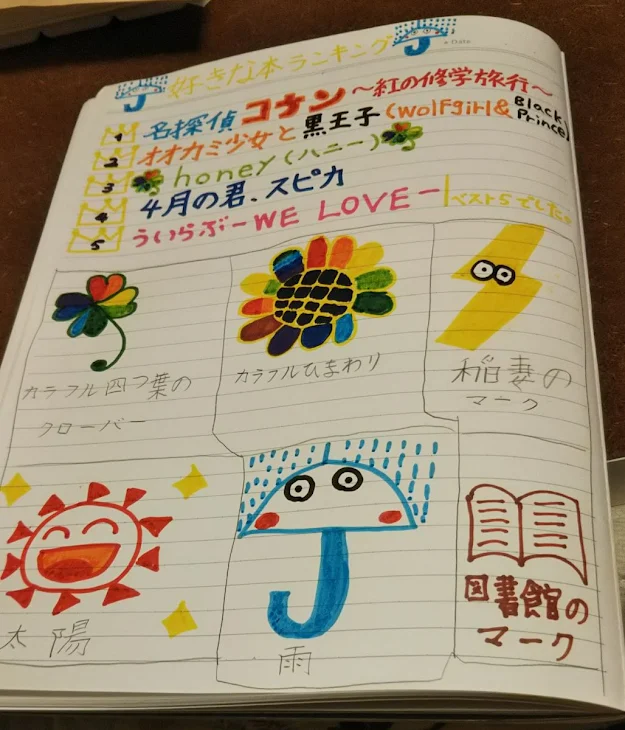 好きな本ランキング
Date
1 名探偵コナン〜紅の修学旅行〜
2 オオカミ少女と黒王子(wolfgirl&Black Prince)
3 honey(ハニー)
4 4月の君、スピカ
5 ういらぶーWE LOVEー ベスト5でした。
カラフル四つ葉の
クローバー
カラフルひまわり
稲妻の
マーク
太陽
雨
図書館の
マーク